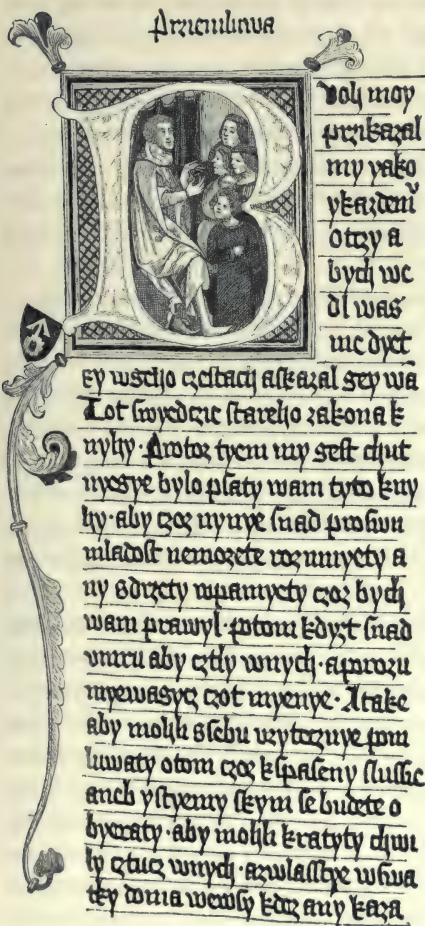 Prziemluwa
Boh moy
przikazal
my yako
ykazdemu
otczy a
bych we
dl was
me dyet
ky wsseho czstaczij askazal gey wa
Lot swyedczie stareho zakona k
nyhy · Protoz tyem my gest chut
nyegye bylo psaty wam tyto kny
hy · aby czoz nynye snad proswu
mladost nemozete rozumyety a
ny sdrzety wpamyety czoz bych
wam prawyl · potom kdyzt snad
umru aby cztly wnych · aporozu
myewagycz czot myenye · A take
aby mohli ssebu uzytecznye pom
luwaty otom czoz kspaseny slussie
aneb ystyemy skym se budete o
byeraty · aby mohli kratyty chwi
ly cztucz wnych · azwlasstye wswa
tky doma wewsy kdez any kaza